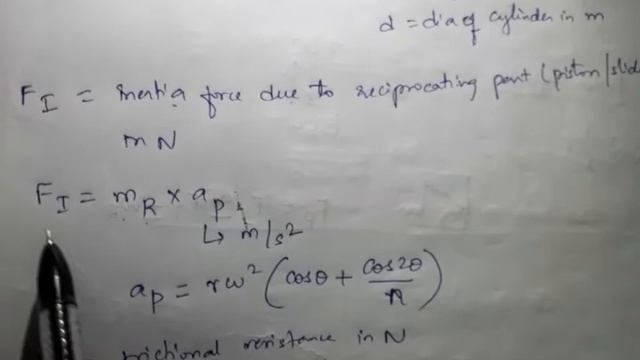 d = dia of cylinder in m
F_I = inertia force due to reciprocating part (piston/slid
in N
F_I = m_R × a_p
↳ m/s²
a_p = rω² (cosθ + cos2θ/n)
frictional resistance in N